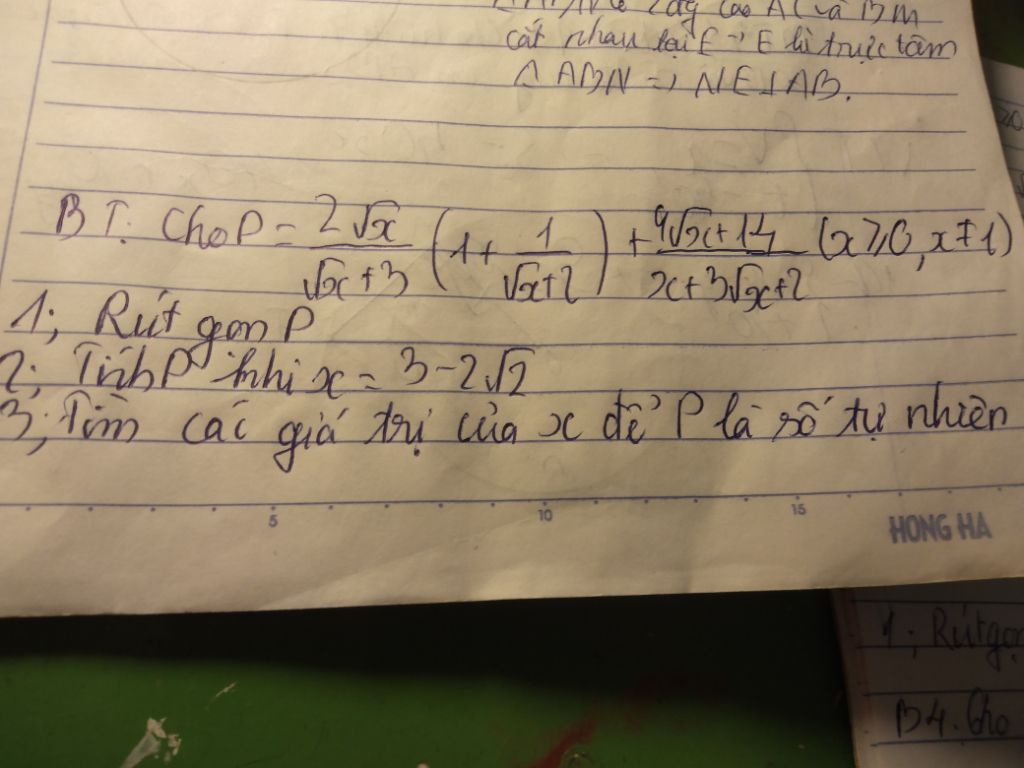 cao AC và BM
cắt nhau tại E → E là trực tâm
△ ABN => NE⊥AB.
BT: Cho P = 2√x/(√x+3) (1 + 1/(√x+2)) + (9√x+14)/(x+3√x+2) (x≥0, x≠1)
1; Rút gọn P
2; Tính P khi x = 3-2√2
3; Tìm các giá trị của x để P là số tự nhiên
5 10 15
HONG HA
1; Rút gọn
B4. Cho